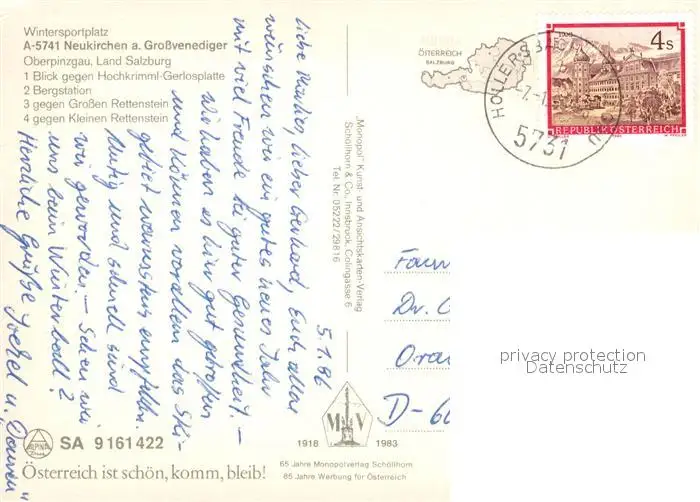 Wintersportplatz
A-5741 Neukirchen a. Großvenediger
Oberpinzgau, Land Salzburg
1 Blick gegen Hochkrimml-Gerlosplatte
2 Bergstation
3 gegen Großen Rettenstein
4 gegen Kleinen Rettenstein
5.1.86
lieber Gerhard, Euch allen
wünschen wir ein gutes neues Jahr
mit viel Freude bei guter Gesundheit. –
Wir haben es hier gut getroffen
und können vor allem das Ski-
gebiet wärmstens empfehlen.
Mutig und schnell sind
wir geworden. – Sehen wir
uns beim Winterball?
Herzliche Grüße
ALPINA
SA 9161422
Österreich ist schön, komm, bleib!
„Monopol" Kunst- und Ansichtskarten-Verlag
Schöllhorn & Co., Innsbruck, Colingasse 6
Tel. Nr. 05222/29816
M V
1918 1983
65 Jahre Monopolverlag Schöllhorn
65 Jahre Werbung für Österreich
ÖSTERREICH
SALZBURG
5731
4 S
REPUBLIK ÖSTERREICH
Fam
Dr.
Oran
D-
privacy protection
Datenschutz